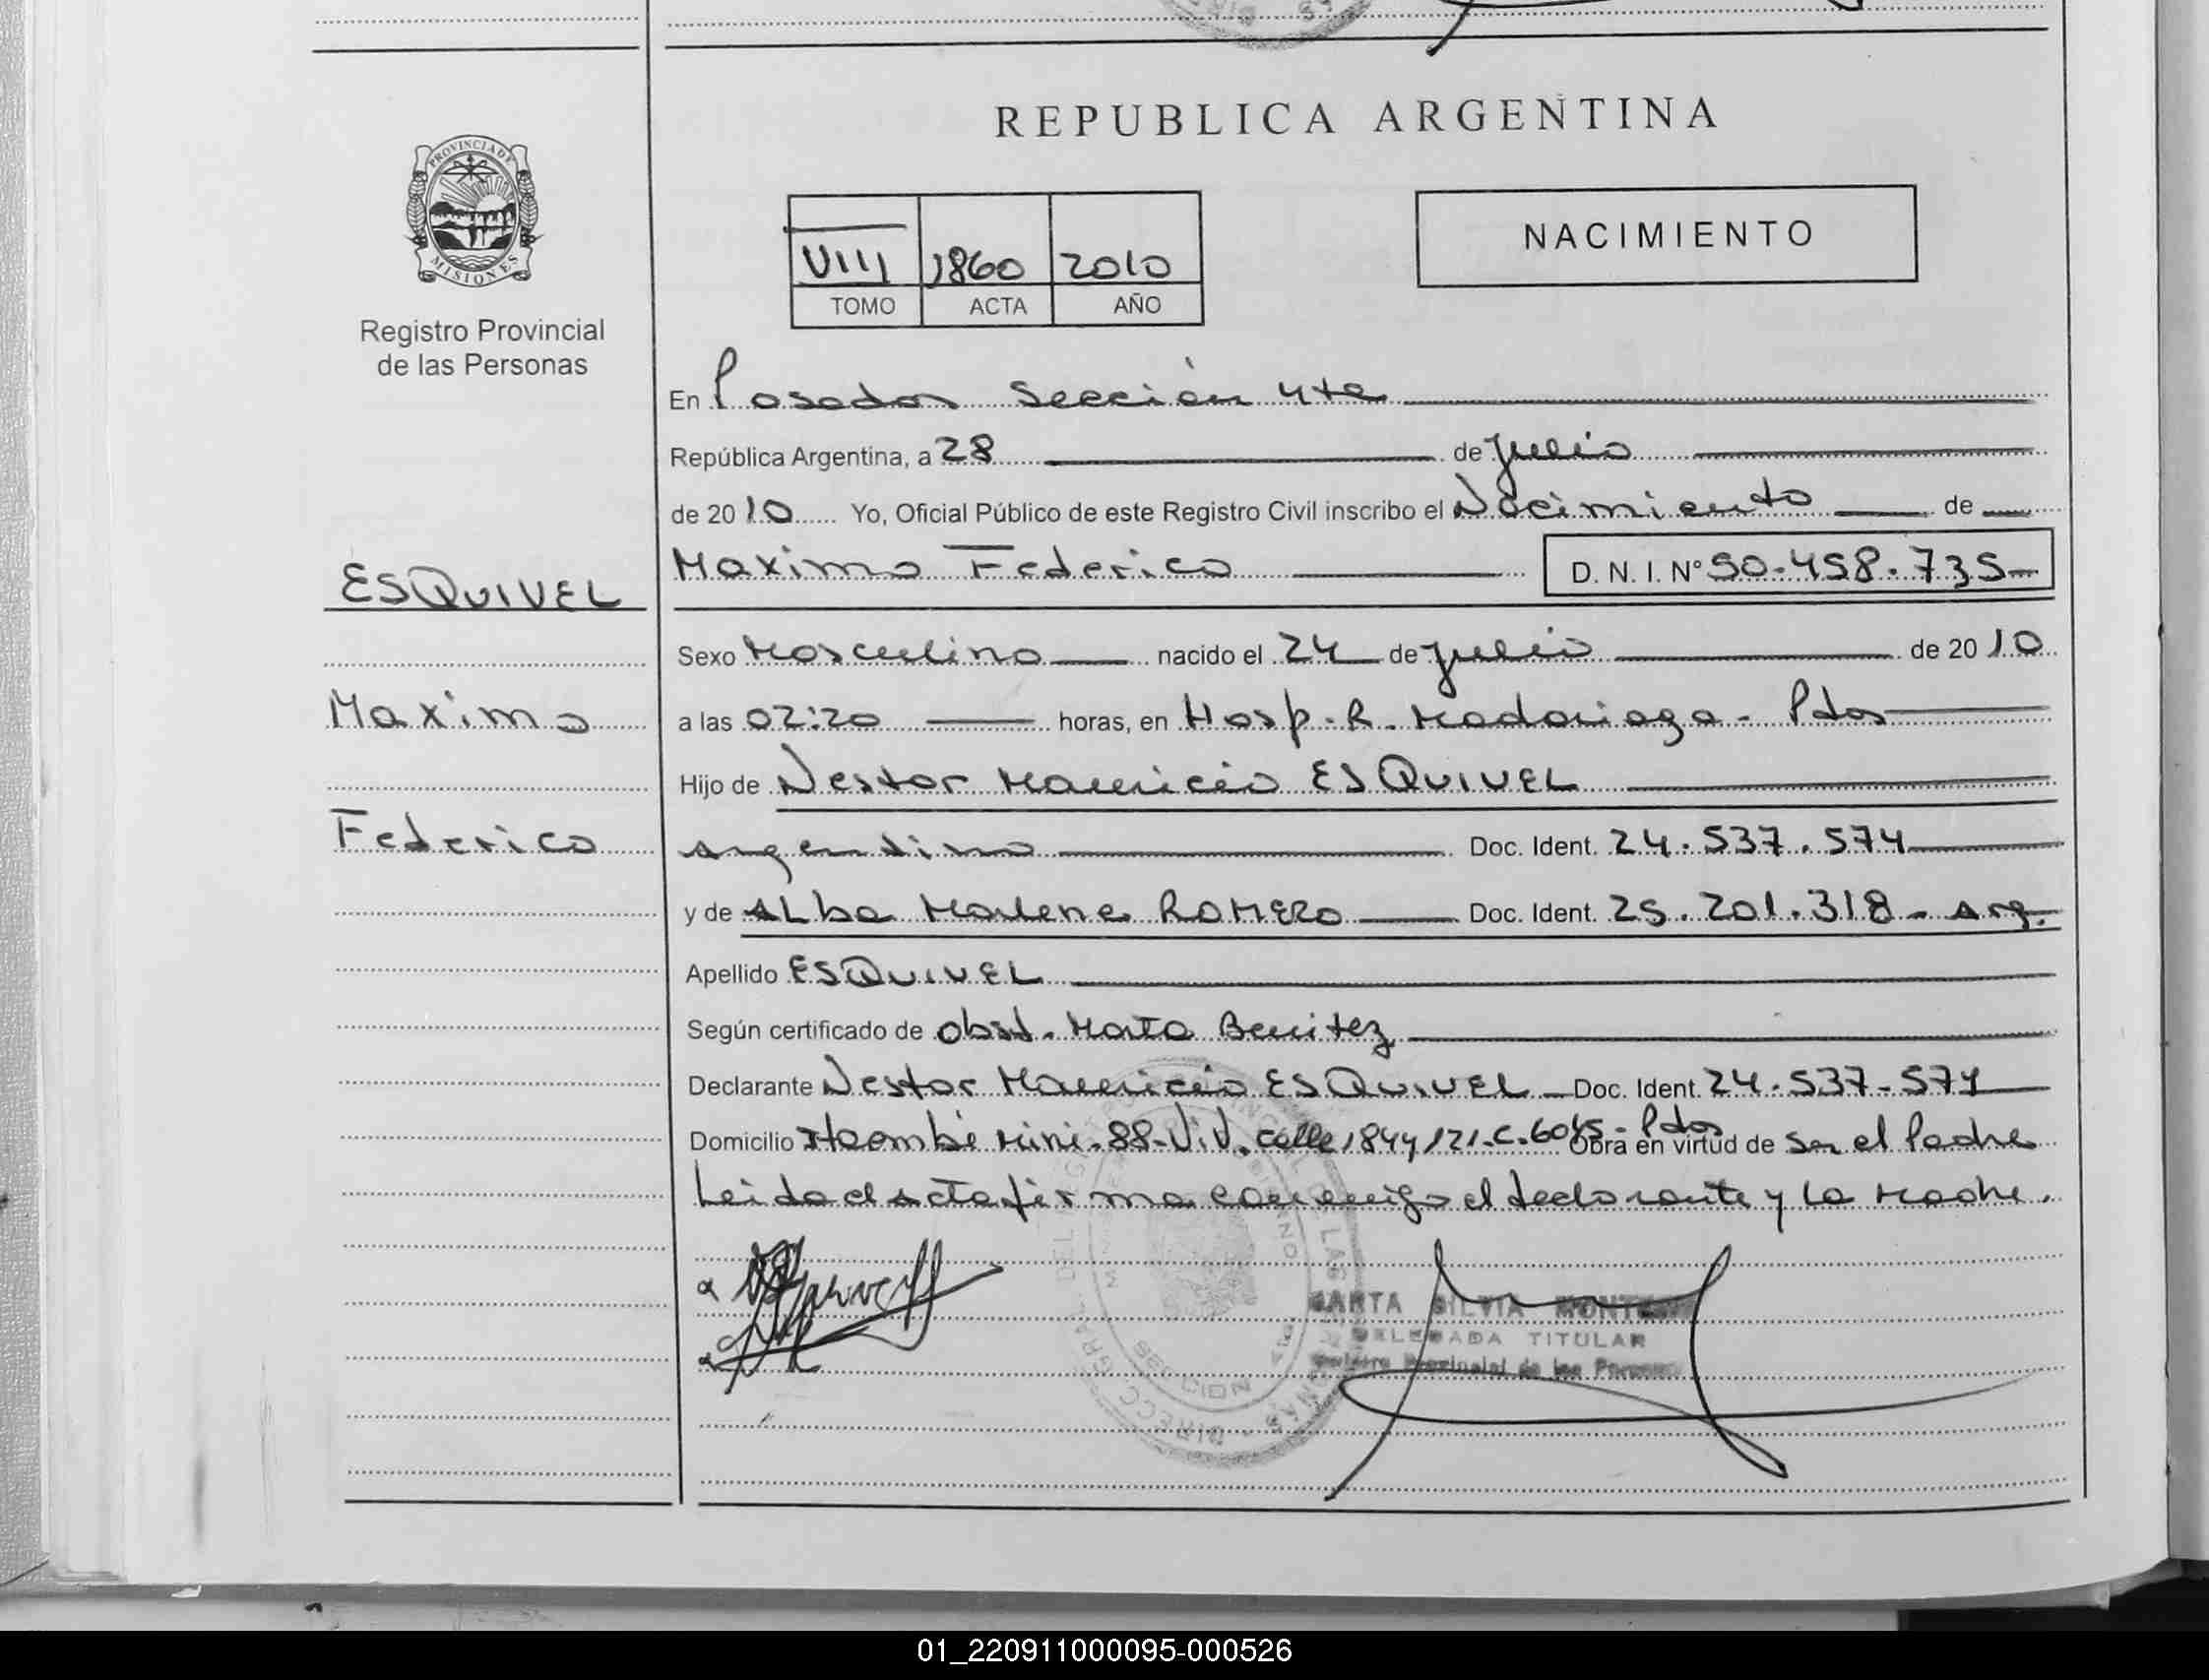 REPUBLICA ARGENTINA
PROVINCIA DE MISIONES
Registro Provincial
de las Personas
VIII 1860 2010
TOMO ACTA AÑO
NACIMIENTO
En Posadas Sección 4ta
República Argentina, a 28 de Julio
de 2010 Yo, Oficial Público de este Registro Civil inscribo el Nacimiento de
ESQUIVEL
Maximo Federico D. N. I. Nº 50.458.735
Sexo Masculino nacido el 24 de Julio de 2010
Maximo
a las 02:20 horas, en Hosp. R. Madariaga - Pdas
Hijo de Nestor Mauricio ESQUIVEL
Federico
Argentino Doc. Ident. 24.537.574
y de Alba Marlene ROMERO Doc. Ident. 25.201.318 - Arg.
Apellido ESQUIVEL
Según certificado de Obst. Marta Benitez
Declarante Nestor Mauricio ESQUIVEL Doc. Ident. 24.537.574
Domicilio Itaembé Mini - 88 - Viv. calle 184 y 121 - C. 6045 - Pdas Obra en virtud de Ser el Padre
Leida el Acta firma conmigo el declarante y la Madre.
SILVIA
DELEGADA TITULAR
Provincial de las
01_220911000095-000526